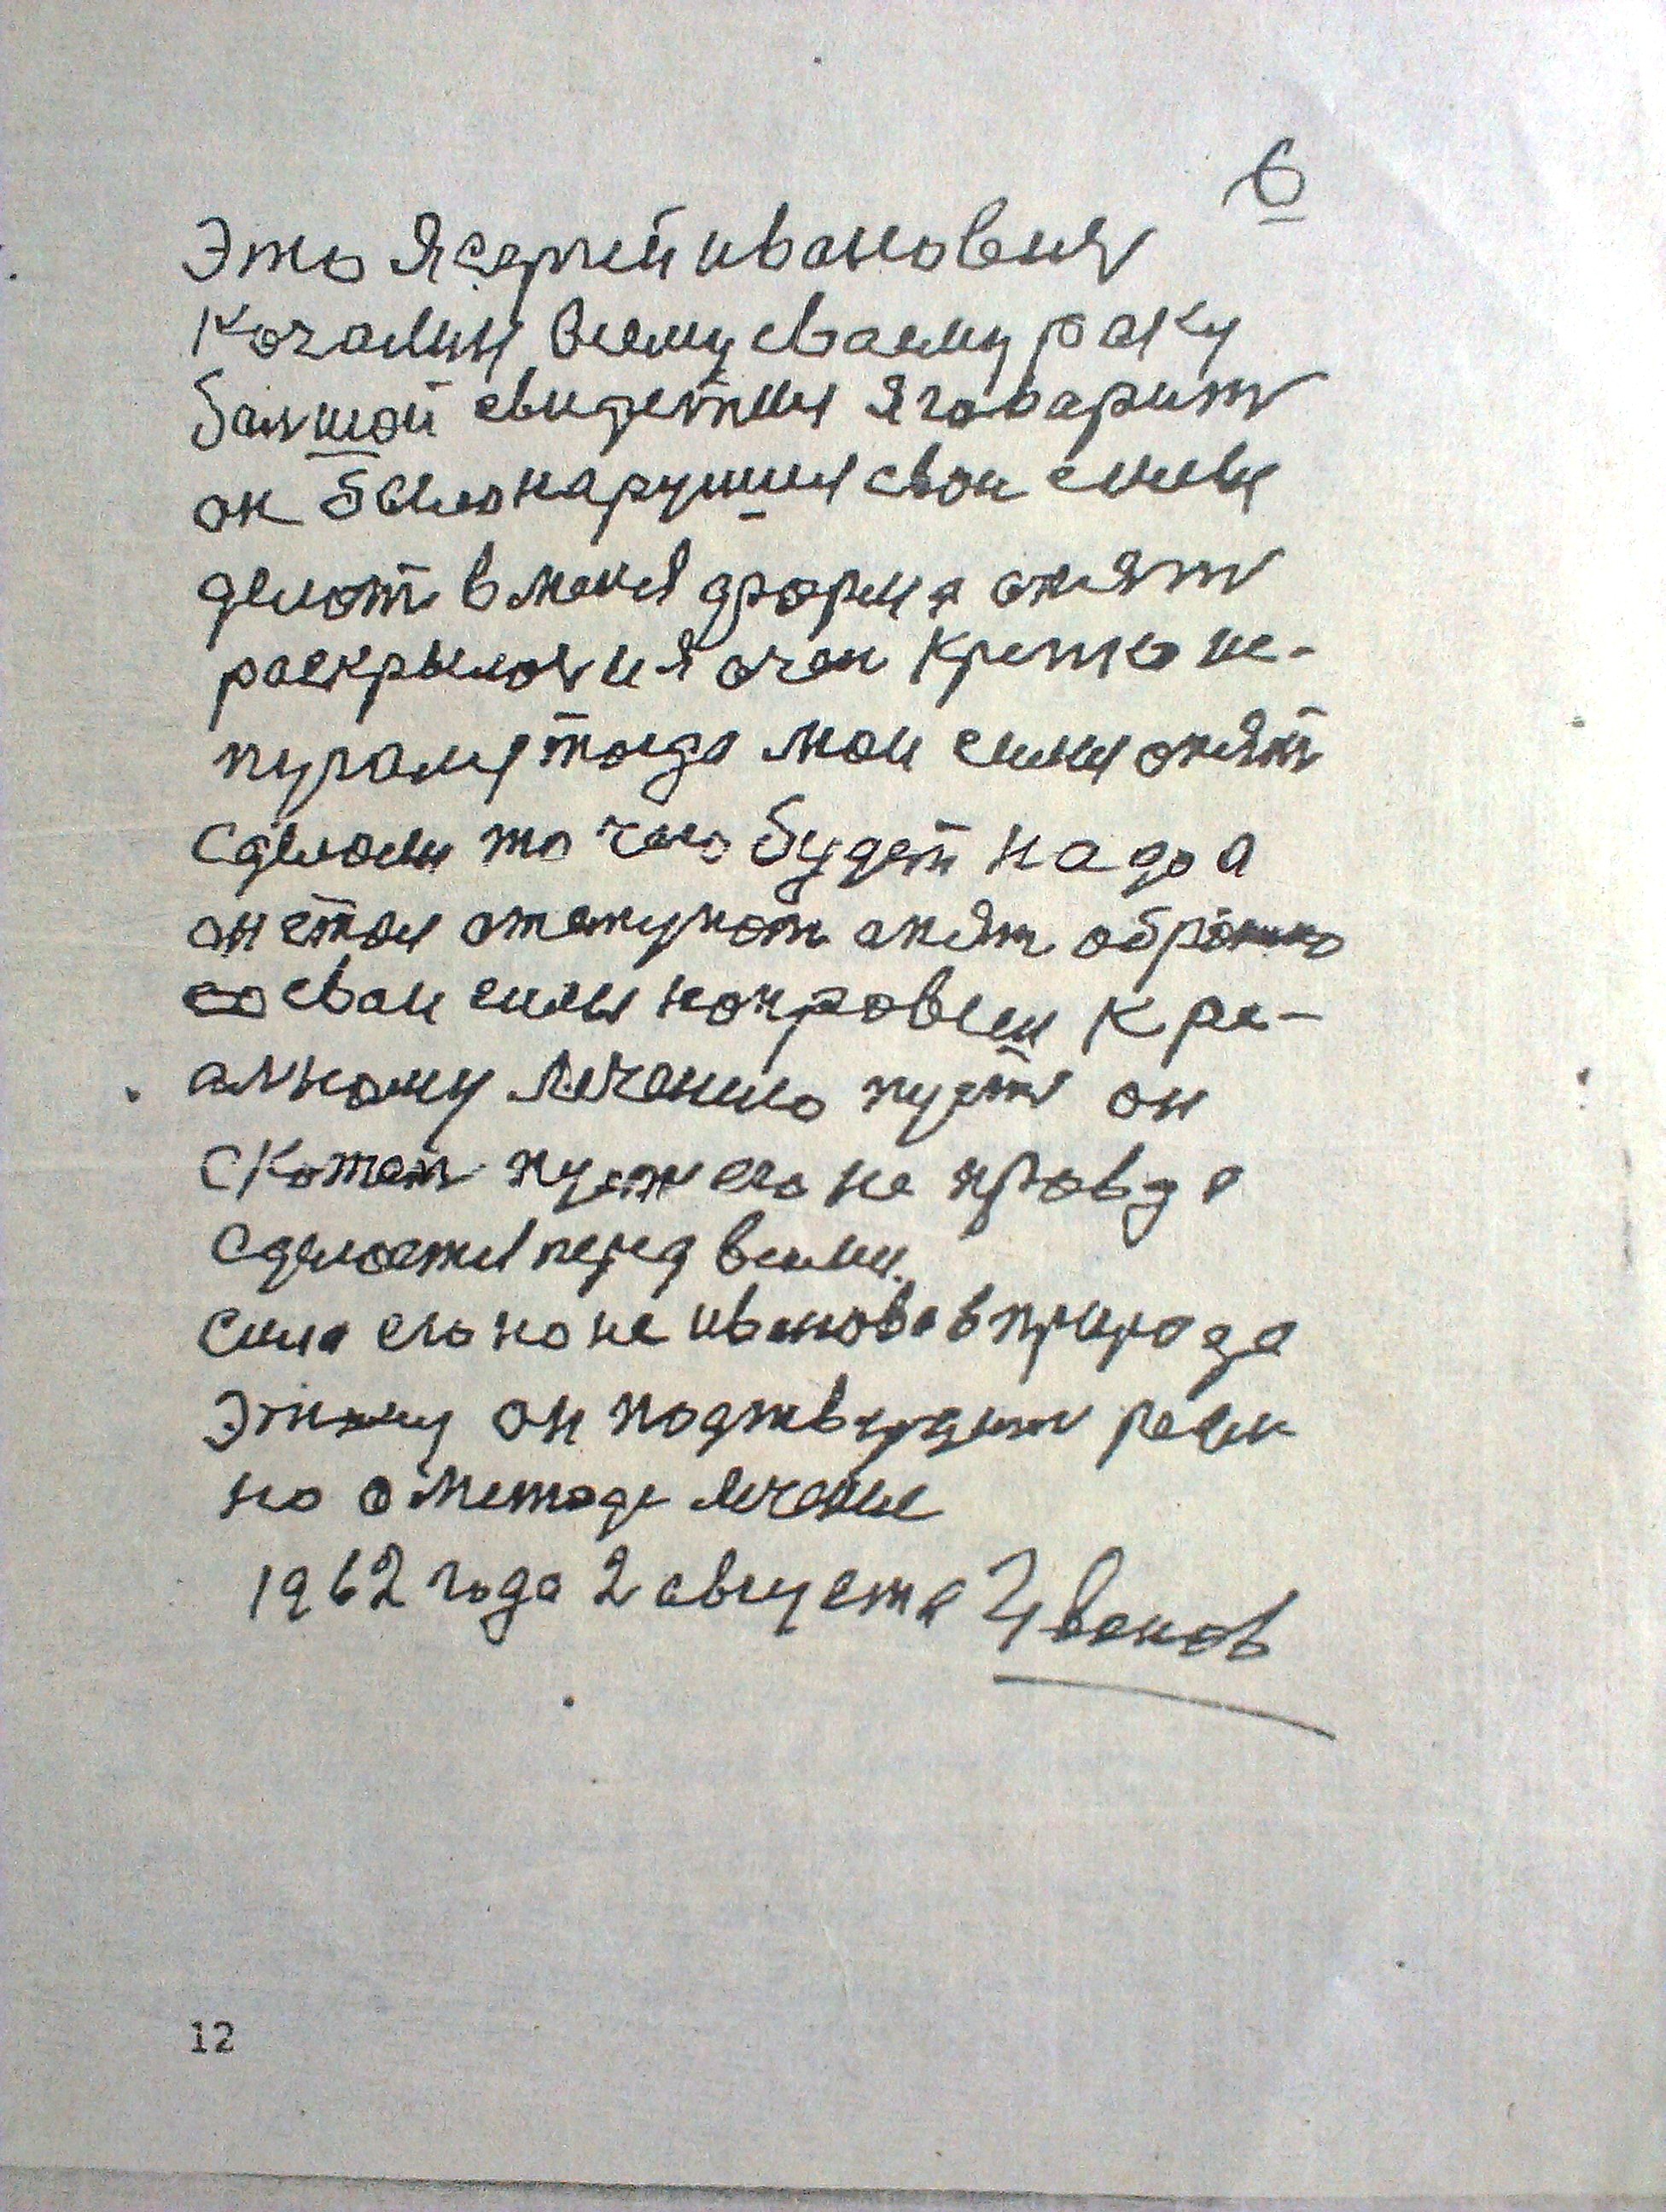 6
Это Я сергей ивановия
Кочалин Всему сваему раку
балшой свидетиль Я говарит
он было нарушил свои силы
делот в меня форма опят
раскрылас и я очен крепко не-
пугалця тогда мои силы опят
Сделали то чего будет надо а
он стал отступат опят обратно
со сваи силы направлен К ре-
алному лечению пуст он
скажет пуст его не правда
сделается перед всими.
сила его но не иванова в природе
Этаму он подтвердит реал
но о методе лечение
1962 года 2 августа Иванов
12